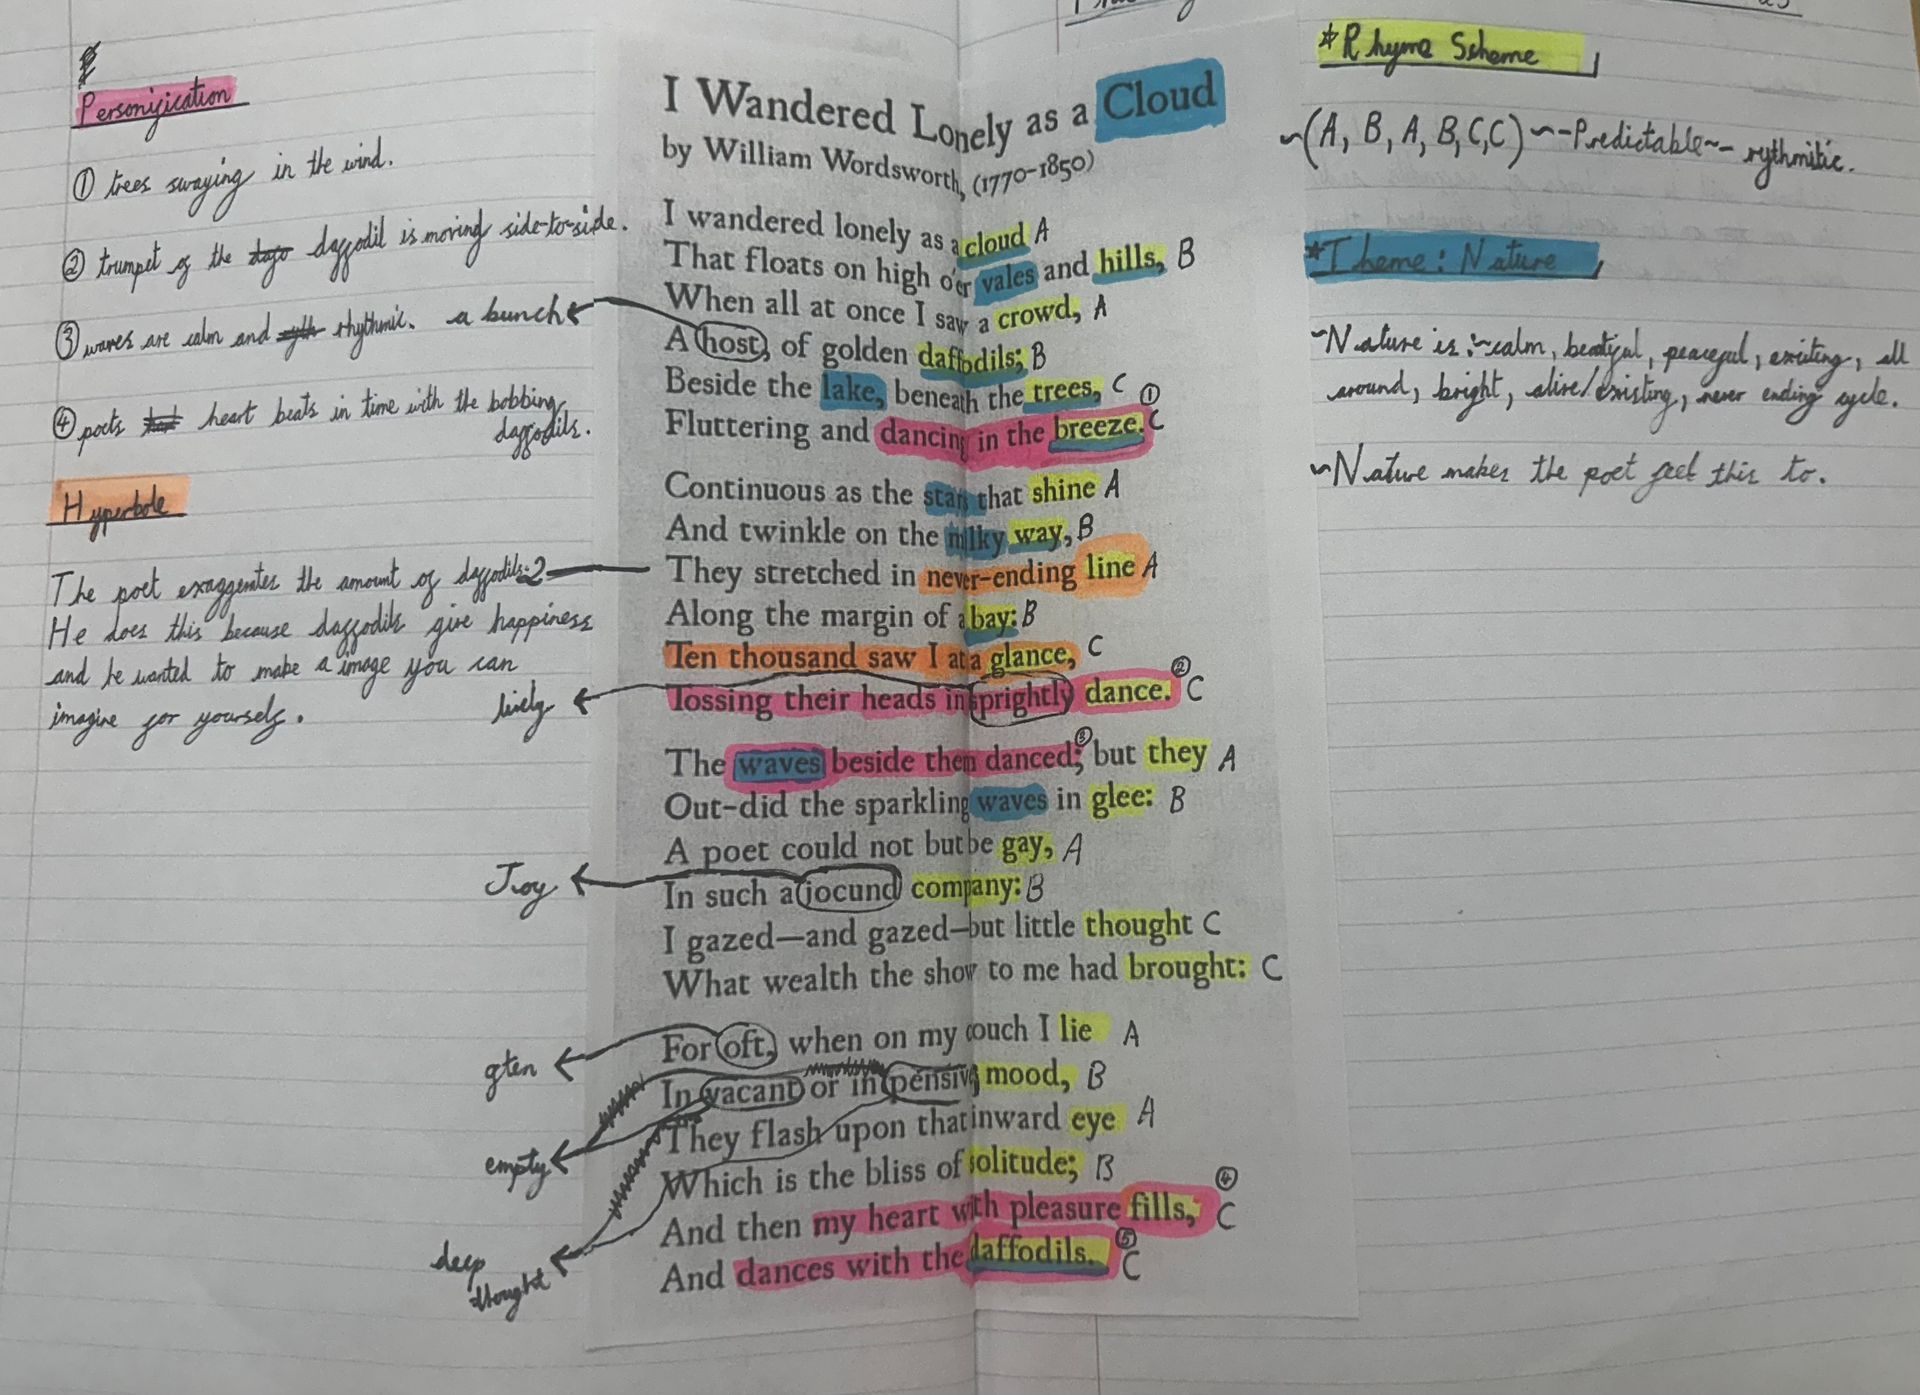 Personification
① trees swaying in the wind.
② trumpet of the daffodil is moving side-to-side.
③ waves are calm and rhythmic.
④ poets heart beats in time with the bobbing
daffodils.
Hyperbole
The poet exaggerates the amount of daffodils.
He does this because daffodils give happiness
and he wanted to make a image you can
imagine for yourself.
a bunch
2
lively
Joy
often
empty
deep
thought
I Wandered Lonely as a Cloud
by William Wordsworth, (1770-1850)
I wandered lonely as a cloud A
That floats on high o'er vales and hills, B
When all at once I saw a crowd, A
A host, of golden daffodils; B
Beside the lake, beneath the trees, C
Fluttering and dancing in the breeze. ① C
Continuous as the stars that shine A
And twinkle on the milky way, B
They stretched in never-ending line A
Along the margin of a bay: B
Ten thousand saw I at a glance, C
Tossing their heads in sprightly dance. ② C
The waves beside them danced; ③ but they A
Out-did the sparkling waves in glee: B
A poet could not but be gay, A
In such a jocund company: B
I gazed—and gazed—but little thought C
What wealth the show to me had brought: C
For oft, when on my couch I lie A
In vacant or in pensive mood, B
They flash upon that inward eye A
Which is the bliss of solitude; B
And then my heart with pleasure fills, ④ C
And dances with the daffodils. ⑤ C
*Rhyme Scheme
~(A, B, A, B, C, C) ~~Predictable~~ rythmitic.
*Theme: Nature
~Nature is :~calm, beautiful, peaceful, exciting, all
around, bright, alive/existing, never ending cycle.
~Nature makes the poet feel this to.